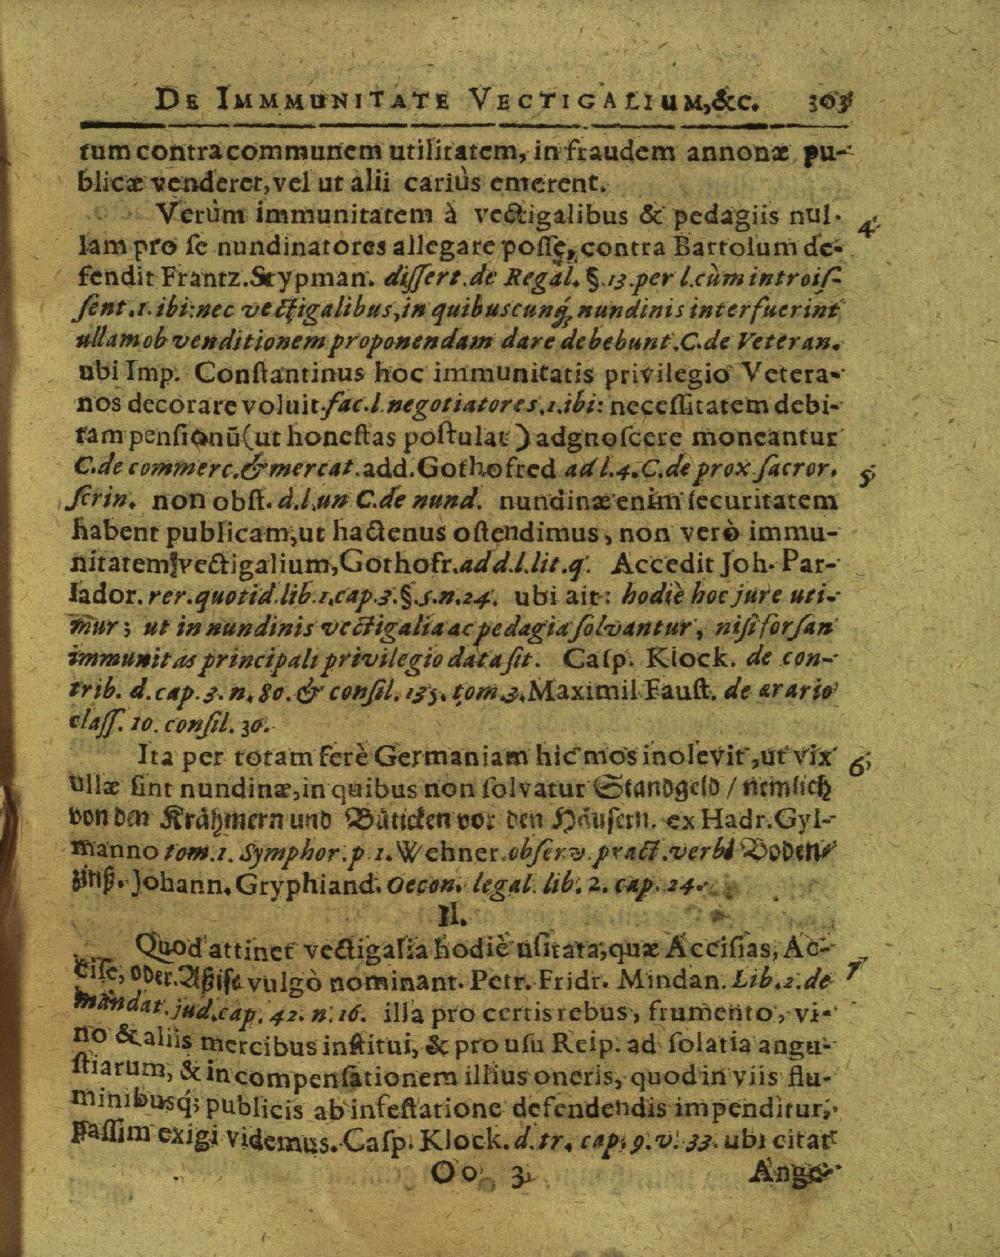 DE IMMMUNITATE VECTIGALIUM,&c. 303
tum contra communem utilitatem, in fraudem annonæ pu-
blicæ venderet, vel ut alii cariùs emerent.
Verùm immunitatem à vectigalibus & pedagiis nul- 4
lam pro se nundinatores allegare posse, contra Bartolum de-
fendit Frantz. Stypman. dissert. de Regal. §. 13. per l. cùm introis-
sent. 1. ibi: nec vectigalibus, in quibuscunq; nundinis interfuerint
ullam ob venditionem proponendam dare debebunt. C. de Veteran.
ubi Imp. Constantinus hoc immunitatis privilegio Vetera-
nos decorare voluit. fac. l. negotiatores. 1. ibi: necessitatem debi-
tam pensionū (ut honestas postulat) adgnoscere moneantur
C. de commerc. & mercat. add. Gothofred ad l. 4. C. de prox. sacror. 5
scrin. non obst. d. l. un C. de nund. nundinæ enim securitatem
habent publicam, ut hactenus ostendimus, non verò immu-
nitatem vectigalium, Gothofr. ad d. l. lit. q. Accedit Joh. Par-
lador. rer. quotid. lib. 1. cap. 3. §. 5. n. 24. ubi ait: hodiè hoc jure uti-
mur; ut in nundinis vectigalia ac pedagia solvantur, nisi forsan
immunitas principali privilegio data sit. Casp. Klock. de con-
trib. d. cap. 3. n. 80. & consil. 135. tom. 3. Maximil Faust. de ærario
class. 10. consil. 30.
Ita per totam ferè Germaniam hic mos inolevit, ut vix 6
ullæ sint nundinæ, in quibus non solvatur Standgeld / nemlich
von den Krähmern und Bäticken vor den Häusern. ex Hadr. Gyl-
manno tom. 1. Symphor. p 1. Wehner. observ. pract. verb Boden-
Johann. Gryphiand. Oecon. legal. lib. 2. cap. 24.
II.
Quod attinet vectigalia hodiè usitata, quæ Accisias, Ac- 7
cise, oder Assise vulgò nominant. Petr. Fridr. Mindan. Lib. 2. de
mandat. jud. cap. 42. n. 16. illa pro certis rebus, frumento, vi-
no & aliis mercibus institui, & pro usu Reip. ad solatia angu-
stiarum, & in compensationem illius oneris, quod in viis flu-
minibusq; publicis ab infestatione defendendis impenditur,
passim exigi videmus. Casp. Klock. d. tr. cap. 9. v. 33. ubi citat
Oo 3 Ange-